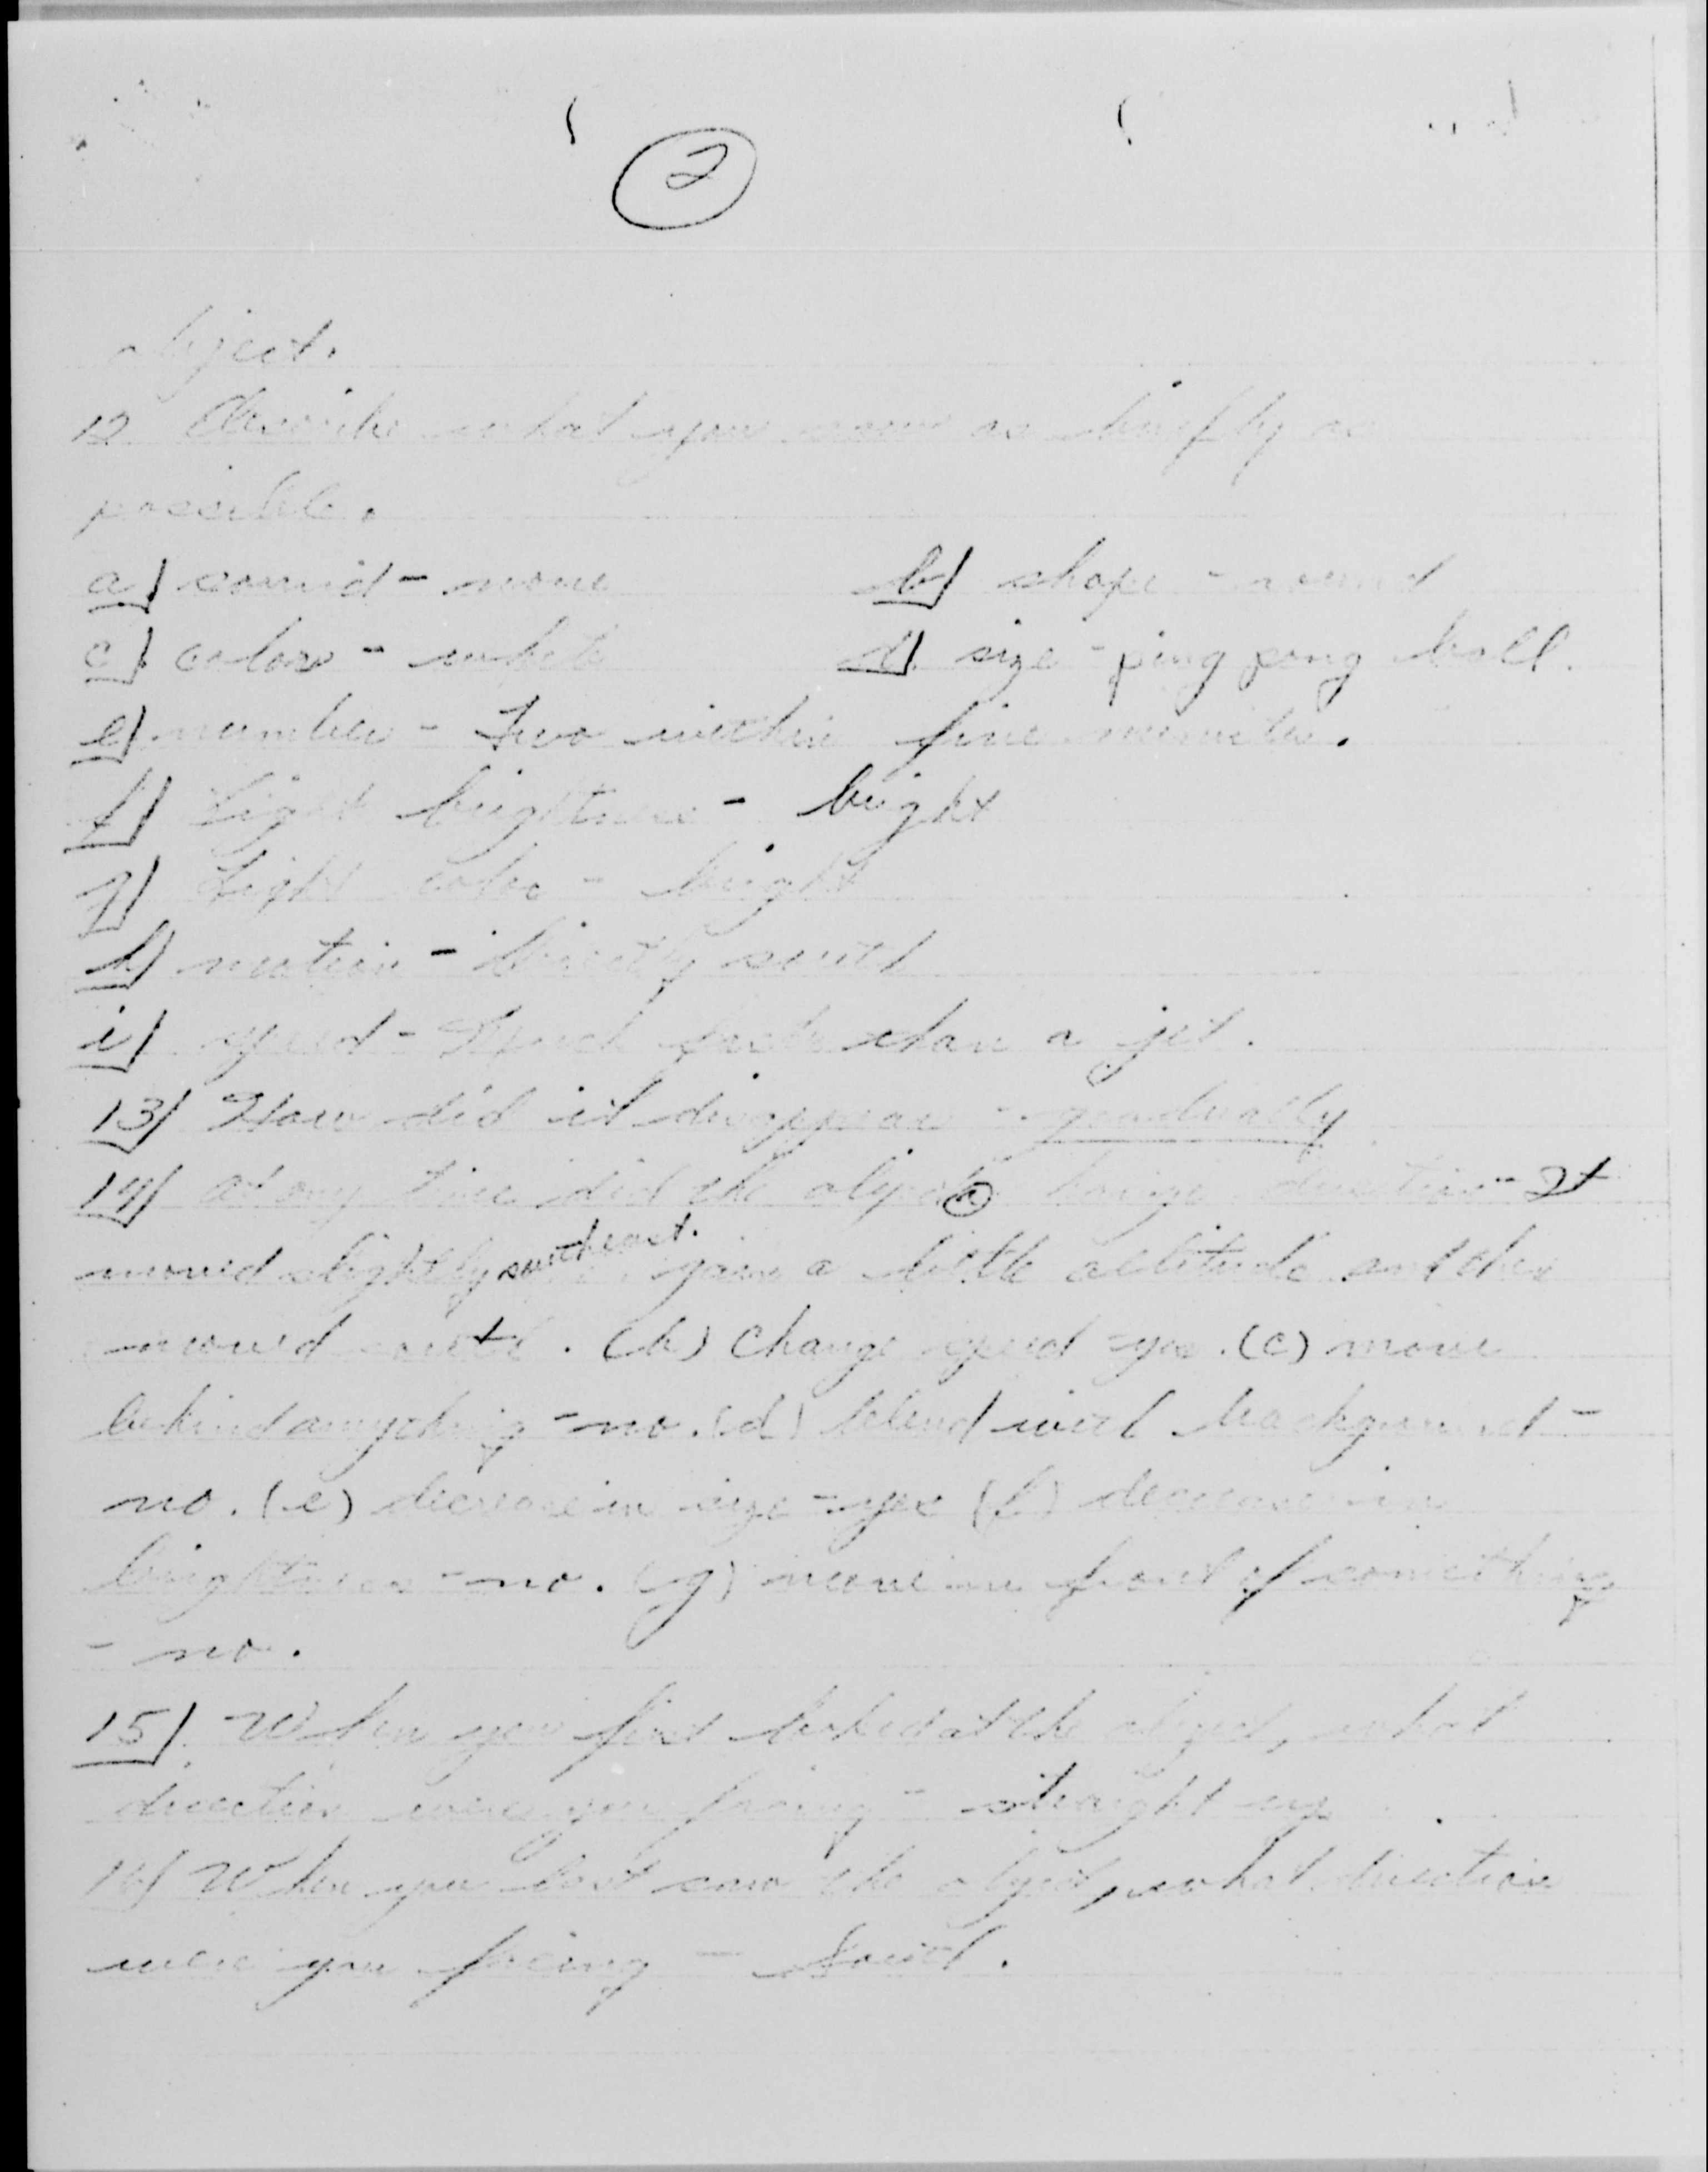 2
object.
12 Describe what you saw as briefly as
possible.
a) sound - none b) shape - round
c) color - white d) size - ping pong ball.
e) number - Two within five minutes.
f) Light brightness - bright
g) Light color - bright
h) motion - directly south
i) speed - Much faster than a jet.
13) How did it disappear - gradually
14) At any time did the object (a) change direction - It
moved slightly southeast. gain a little altitude and then
moved south. (b) Change speed - yes. (c) move
behind anything - no. (d) blend with background -
no. (e) decrease in size - yes (f) decrease in
brightness - no. (g) move in front of something
- no.
15) When you first looked at the object, what
direction were you facing - straight up
16) When you last saw the object, what direction
were you facing - South.